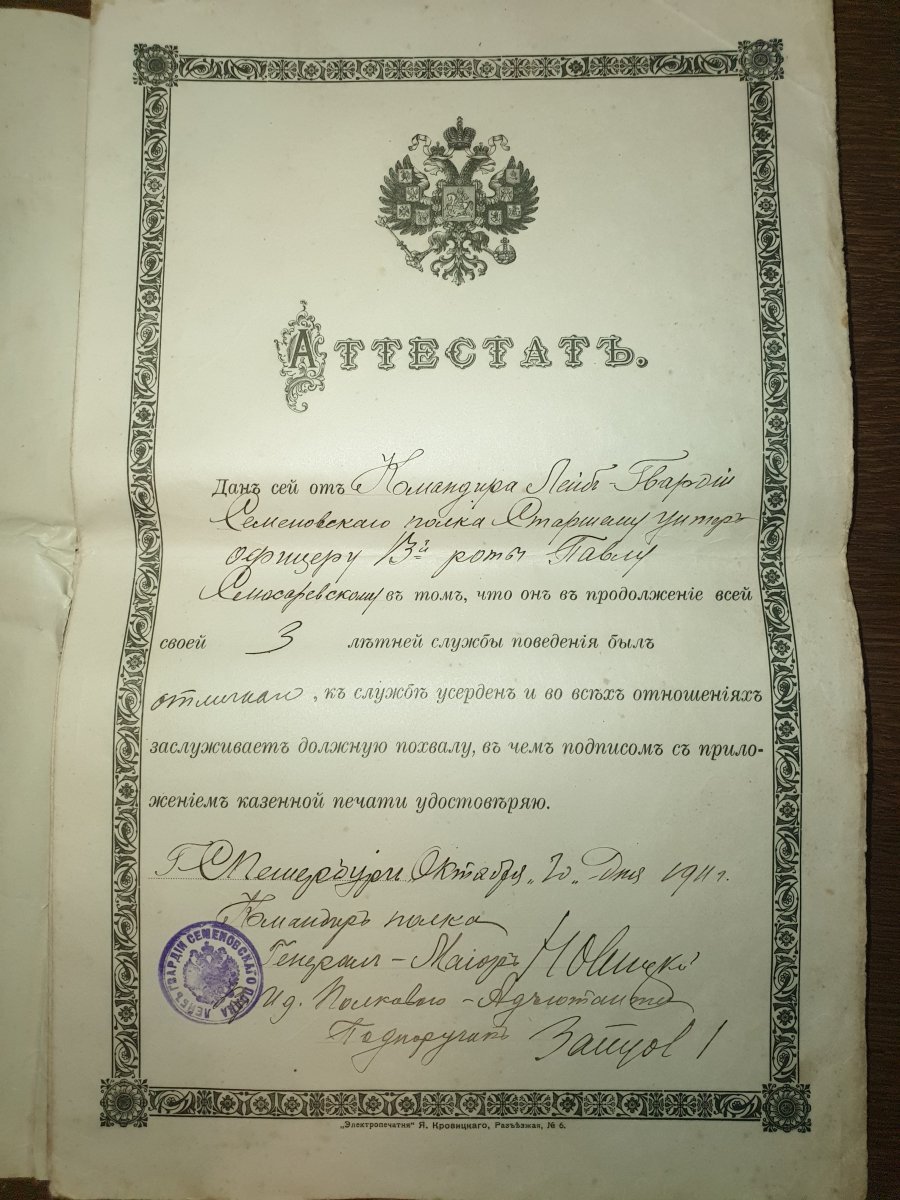 Аттестатъ.
Данъ сей отъ Командира Лейбъ-Гвардіи
Семеновскаго полка Старшему унтеръ-
офицеру 13й роты Павлу
Слюсаревскому въ томъ, что онъ въ продолженіе всей
своей 3 лѣтней службы поведенія былъ
отличнаго, къ службѣ усерденъ и во всѣхъ отношеніяхъ
заслуживаетъ должную похвалу, въ чемъ подписомъ съ прило-
женіемъ казенной печати удостовѣряю.
Г. СПетербургъ Октября „20„ Дня 1911 г.
Командиръ полка
Генералъ-Маіоръ Новицкій
И. д. Полкового-Адъютанта
Подпоручикъ
ЛЕЙБЪ ГВАРДІИ СЕМЕНОВСКАГО ПОЛКА
„Электропечатня“ Я. Кровицкаго, Разъѣзжая, № 6.